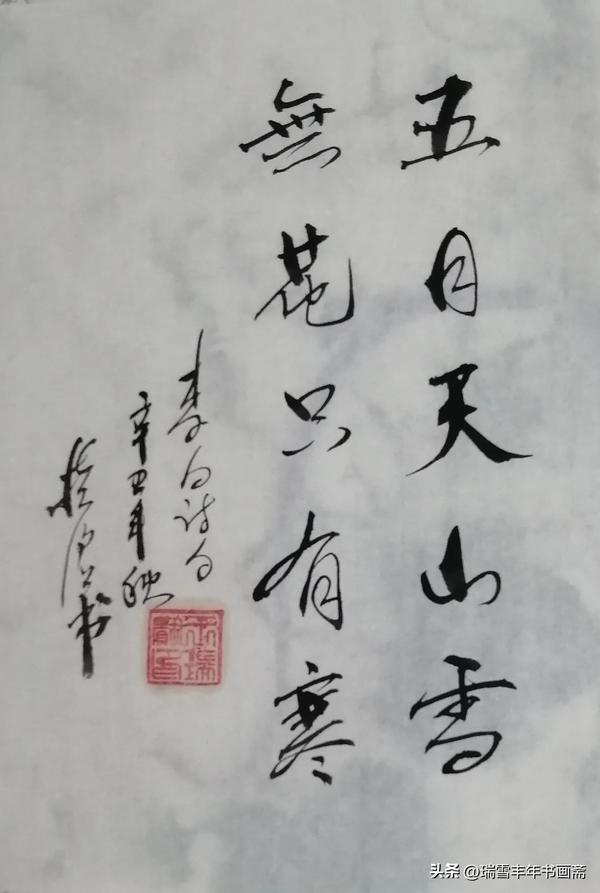 五月天山雪
無花只有寒
李白诗句
辛丑年秋
书
头条 @瑞雪丰年书画斋